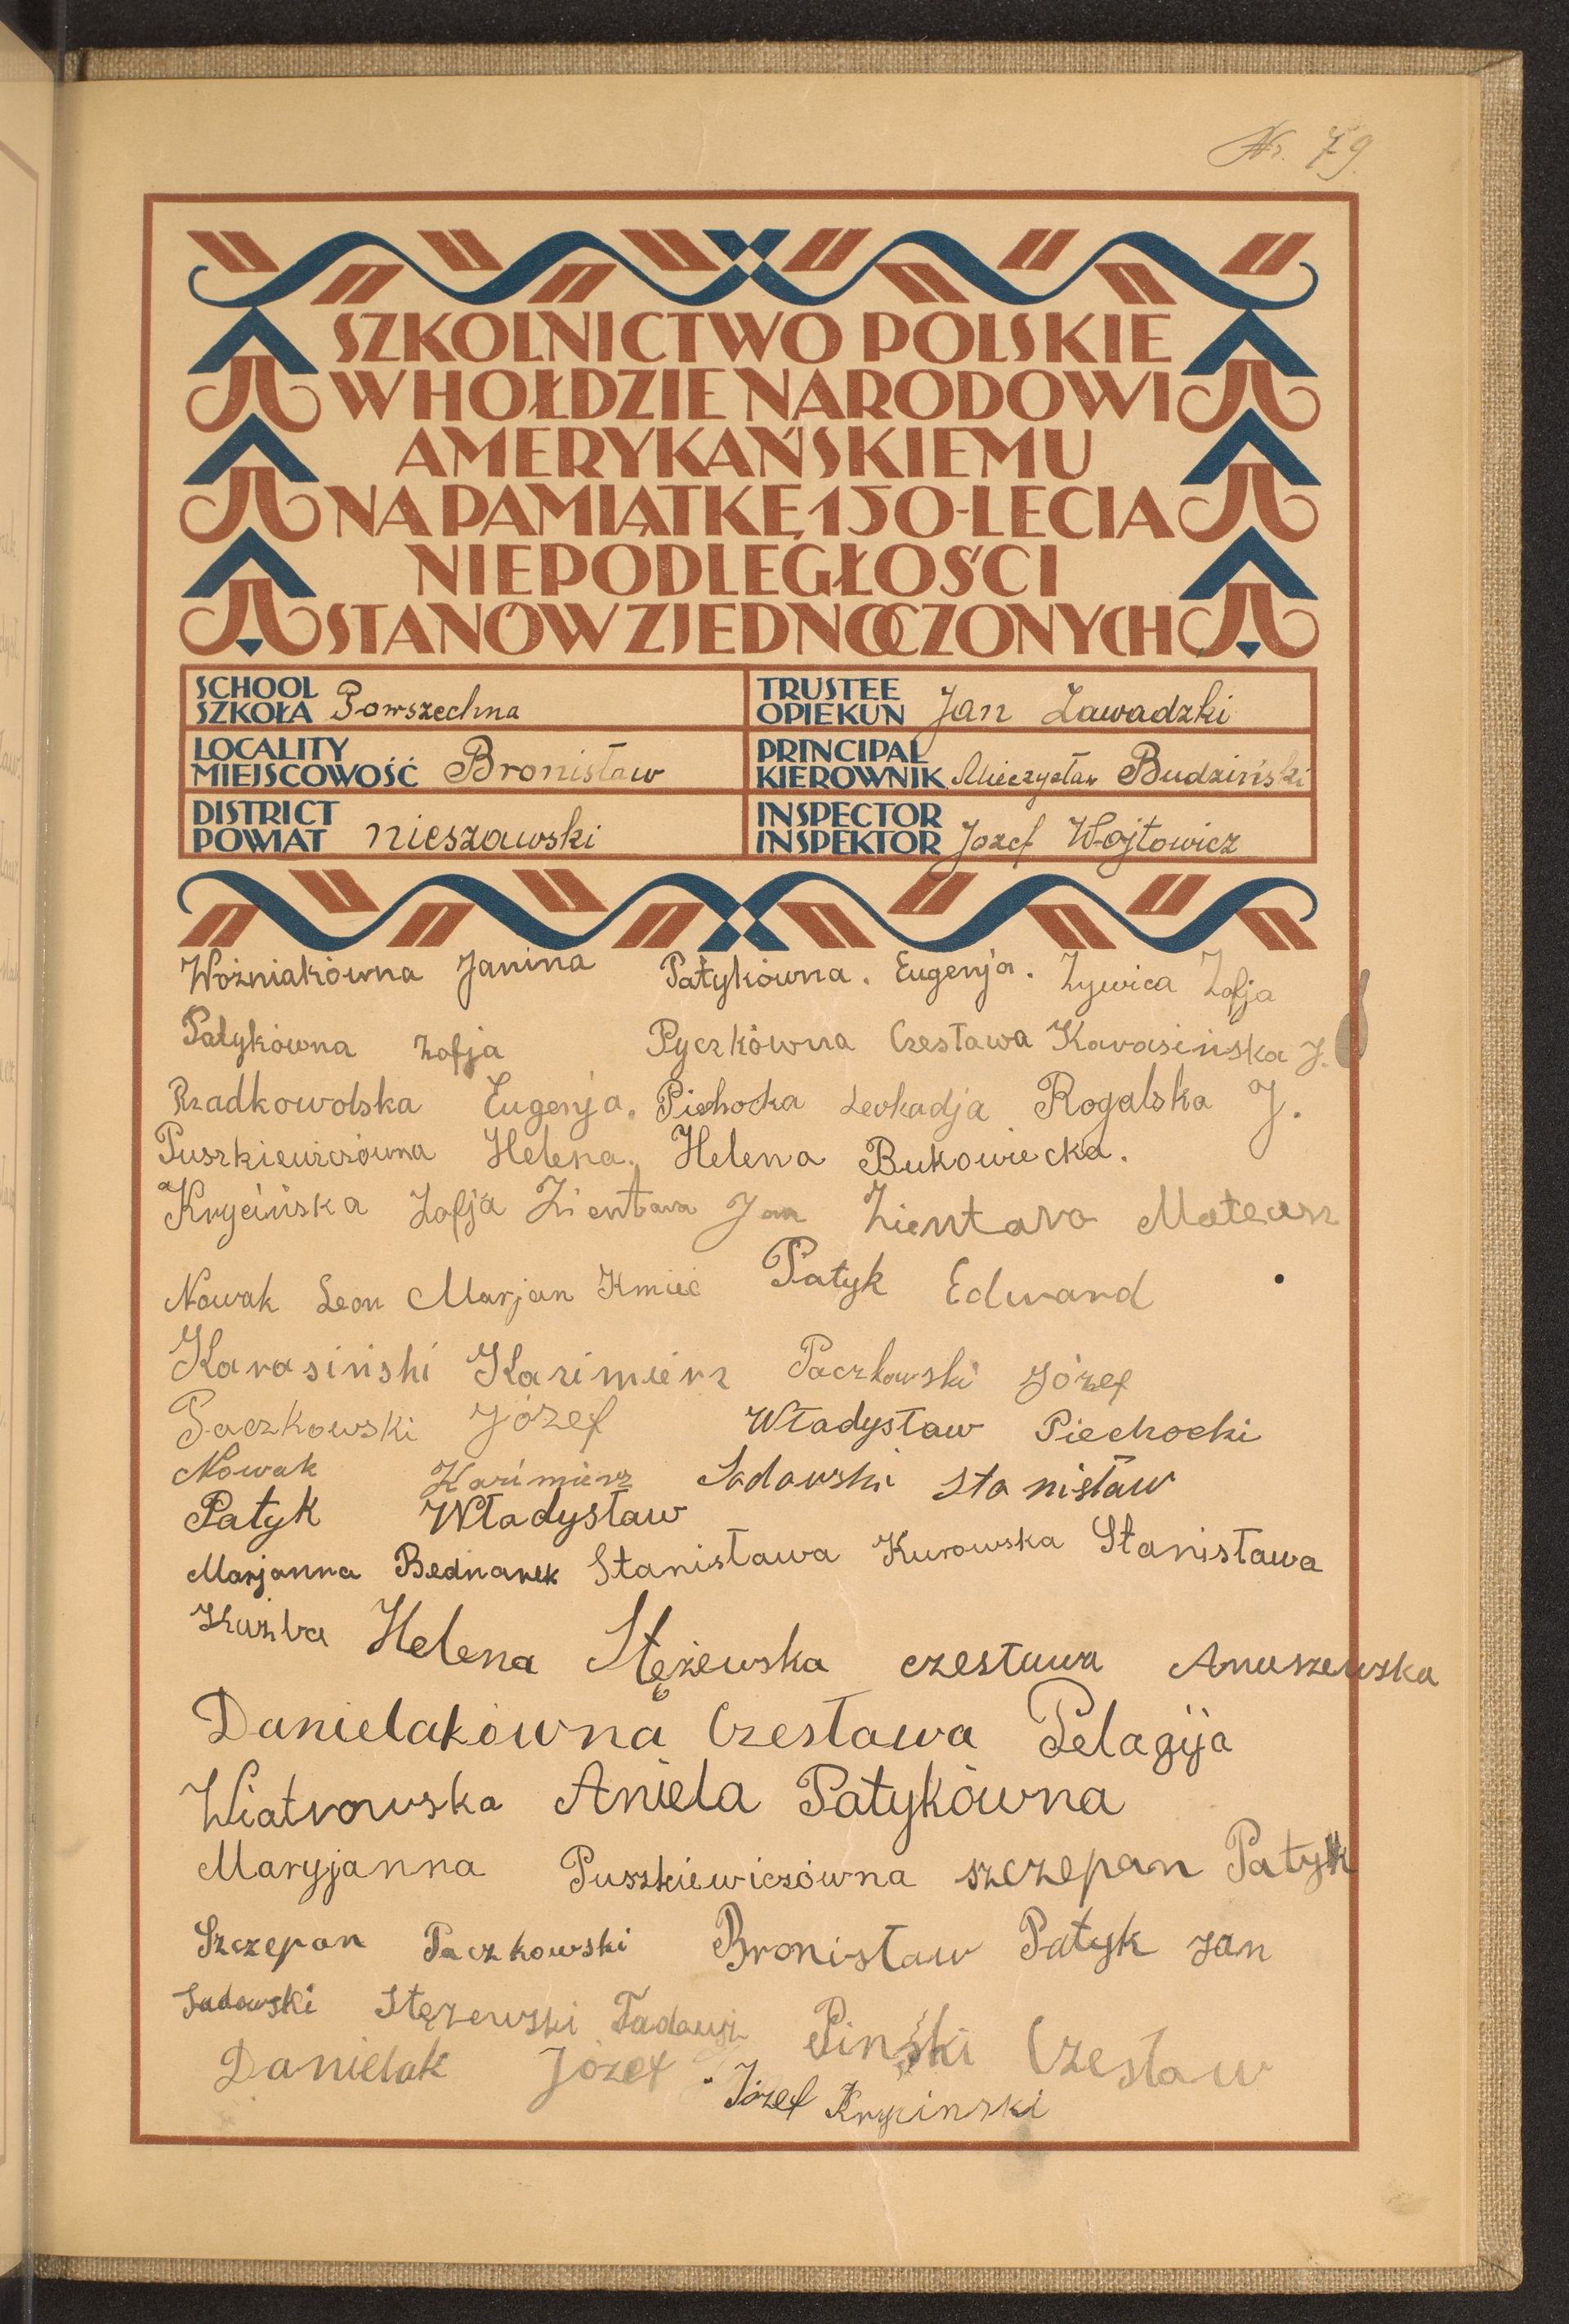 Nr. 79.
SZKOLNICTWO POLSKIE
W HOŁDZIE NARODOWI
AMERYKAŃSKIEMU
NA PAMIĄTKĘ 150-LECIA
NIEPODLEGŁOŚCI
STANÓW ZJEDNOCZONYCH
SCHOOL
SZKOŁA Powszechna
TRUSTEE
OPIEKUN Jan Zawadzki
LOCALITY
MIEJSCOWOŚĆ Bronisław
PRINCIPAL
KIEROWNIK Mieczysław Budziński
DISTRICT
POWIAT nieszawski
INSPECTOR
INSPEKTOR Józef Wojtowicz
Woźniakówna Janina Patykówna. Eugenja. Zywica Zofja
Patykówna Zofja Pyczkówna Czesława Karasińska J.
Rzadkowolska Eugenja. Piechocka Leokadja Rogalska J.
Puszkiewiczówna Helena. Helena Bukowiecka.
Krycińska Zofja Zientara Jan Zientara Mateusz
Nowak Leon Marjan Kmieć Patyk Edward
Karasiński Kazimierz Paczkowski Józef
Paczkowski Józef Władysław Piechocki
Nowak Kazimierz Sadowski Stanisław
Patyk Władysław
Marjanna Bednarek Stanisława Kurowska Stanisława
Kuźba Helena Stężewska czesława Anuszewska
Danielakówna Czesława Pelagija
Wiatrowska Aniela Patykówna
Maryjanna Puszkiewiczówna szczepan Patyk
Szczepan Paczkowski Bronisław Patyk Jan
Sadowski Stęzewski Pinśki Czesław
Danielak Józef Józef Krycinski